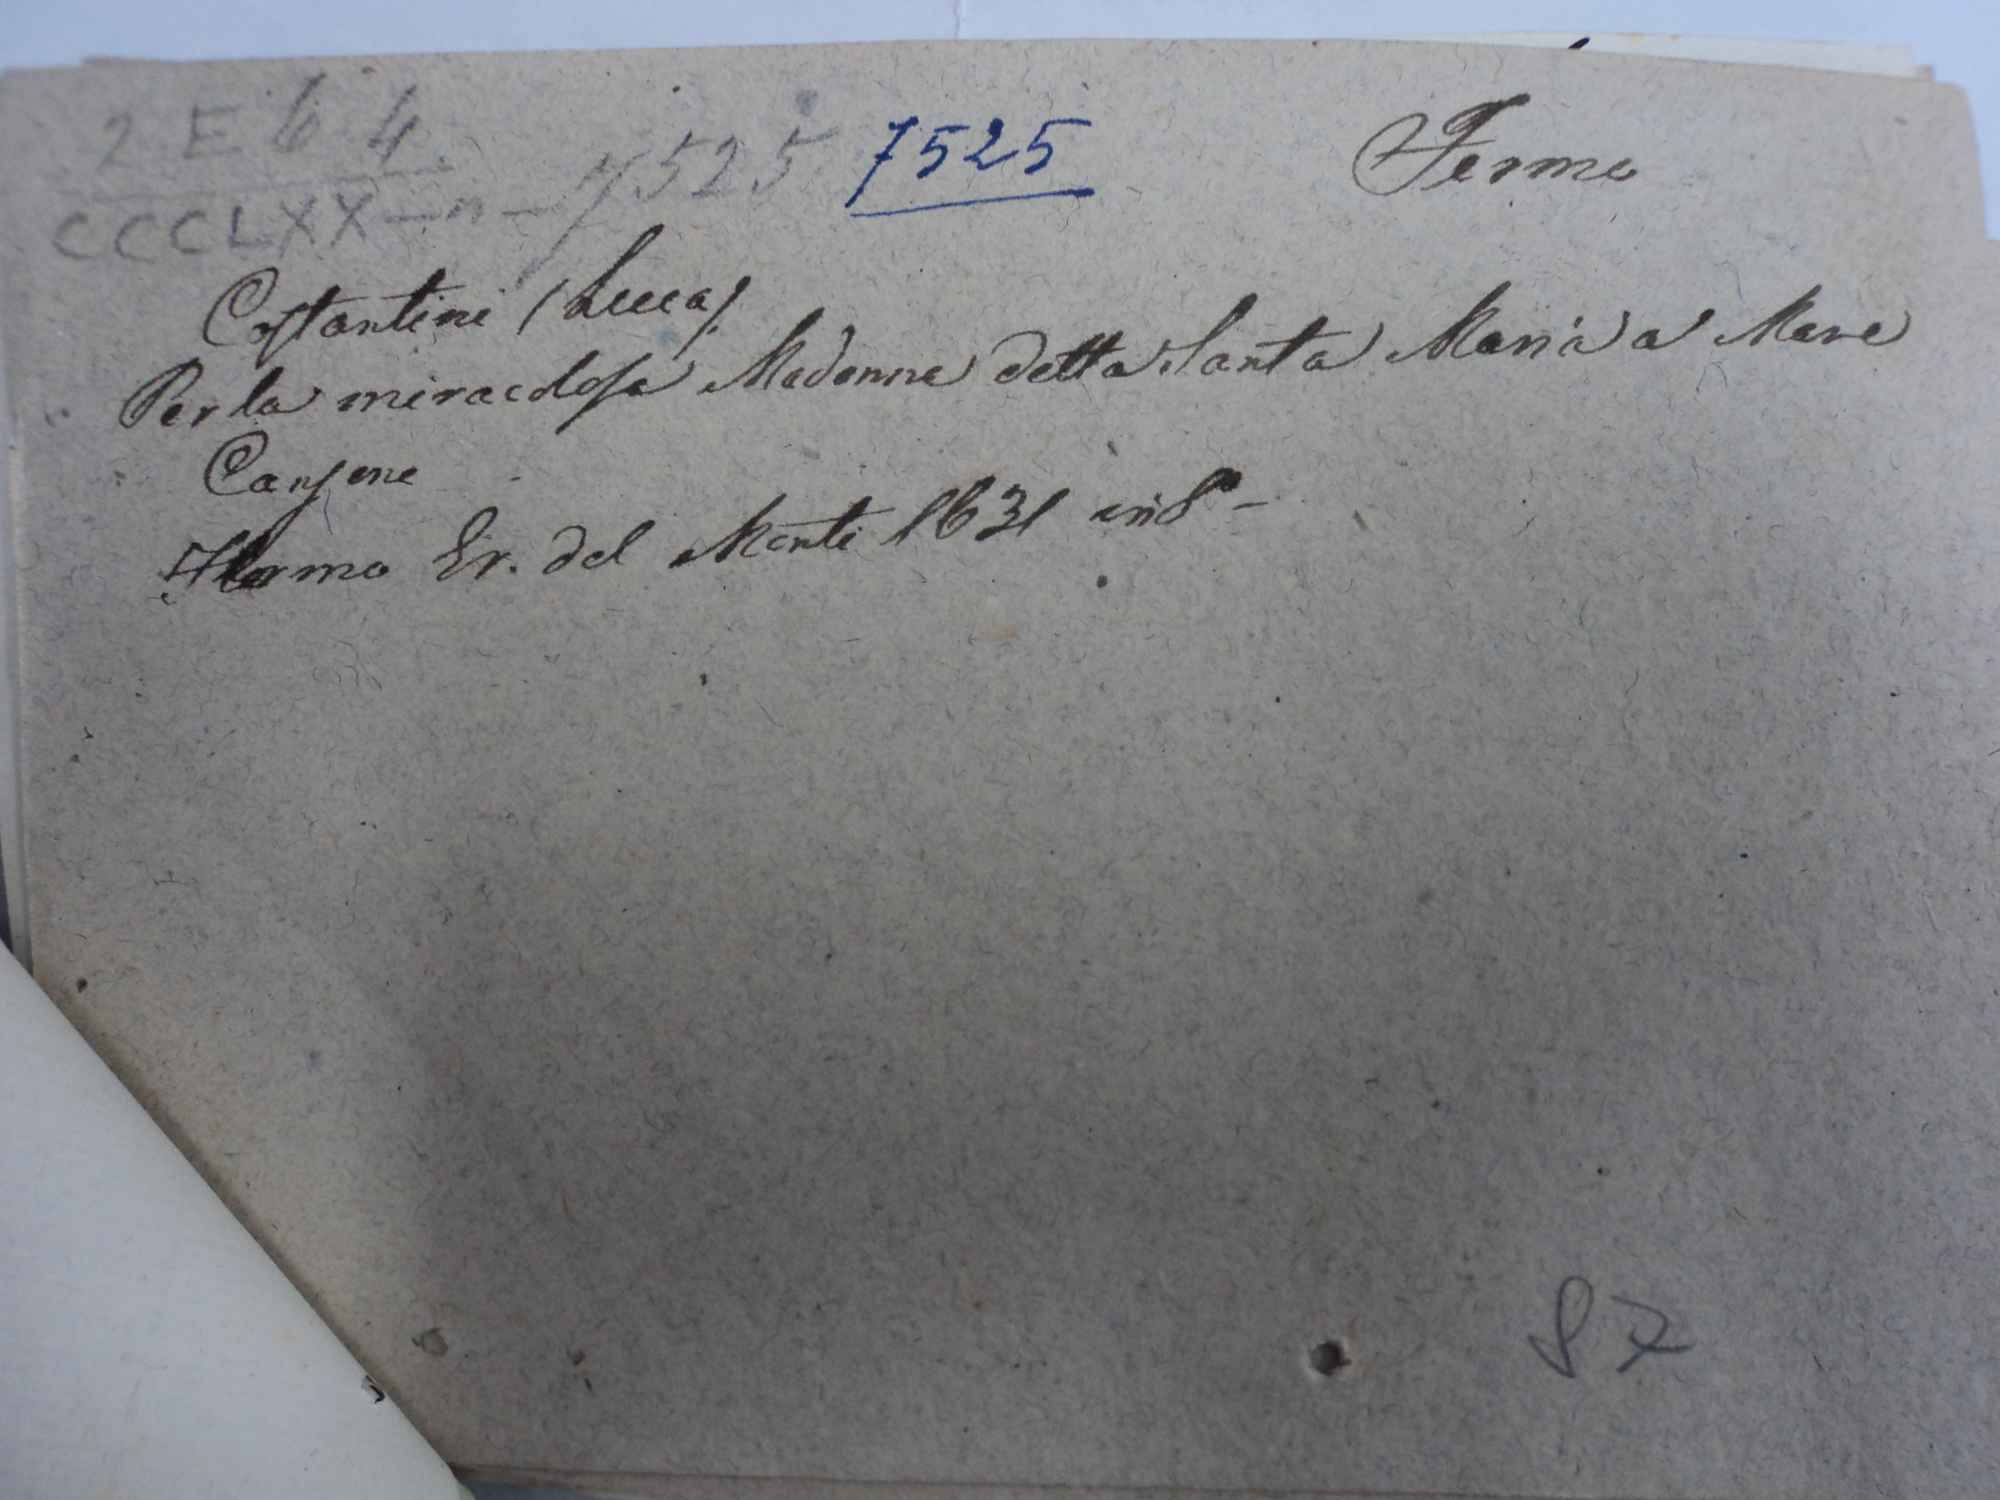 2 E 6 4 Fermo
CCCLXX — n — 7525 7525
Costantini (Lucca).
Per la miracolosa Madonna detta Santa Maria a Mare
Canzone
Fermo Er. del Monti 1631 in 8° —
87